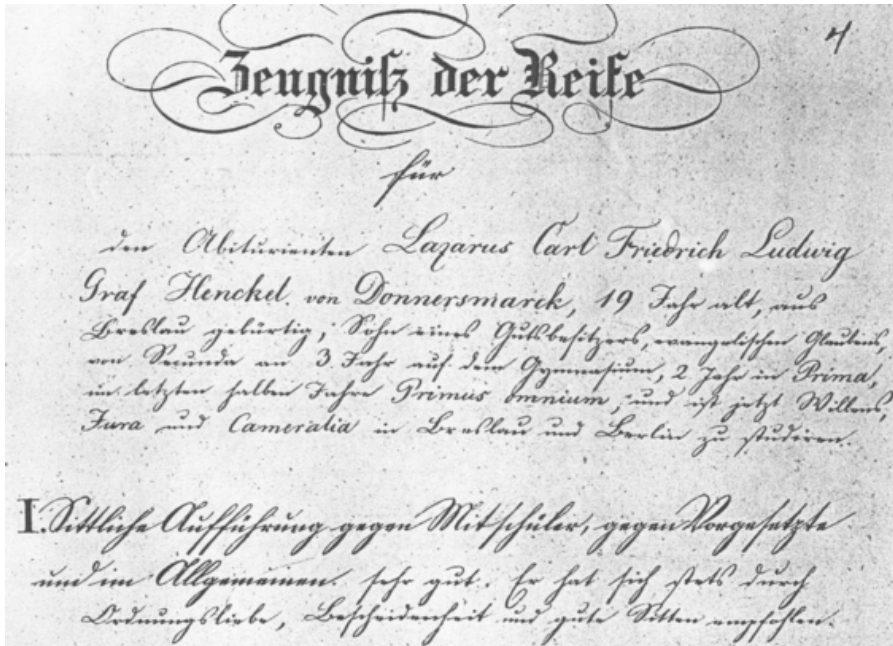 4
Zeugniß der Reife
für
den Abiturienten Lazarus Carl Friedrich Ludwig
Graf Henckel von Donnersmarck, 19 Jahr alt, aus
Breslau gebürtig, Sohn eines Gutsbesitzers, evangelischen Glaubens,
von Secunda an 3 Jahr auf dem Gymnasium, 2 Jahr in Prima,
im letzten halben Jahre Primus omnium, und ist jetzt Willens,
Jura und Cameralia in Breslau und Berlin zu studiren.
I. Sittliche Aufführung gegen Mitschüler, gegen Vorgesetzte
und im Allgemeinen. sehr gut. Er hat sich stets durch
Ordnungsliebe, Bescheidenheit und gute Sitten empfohlen.